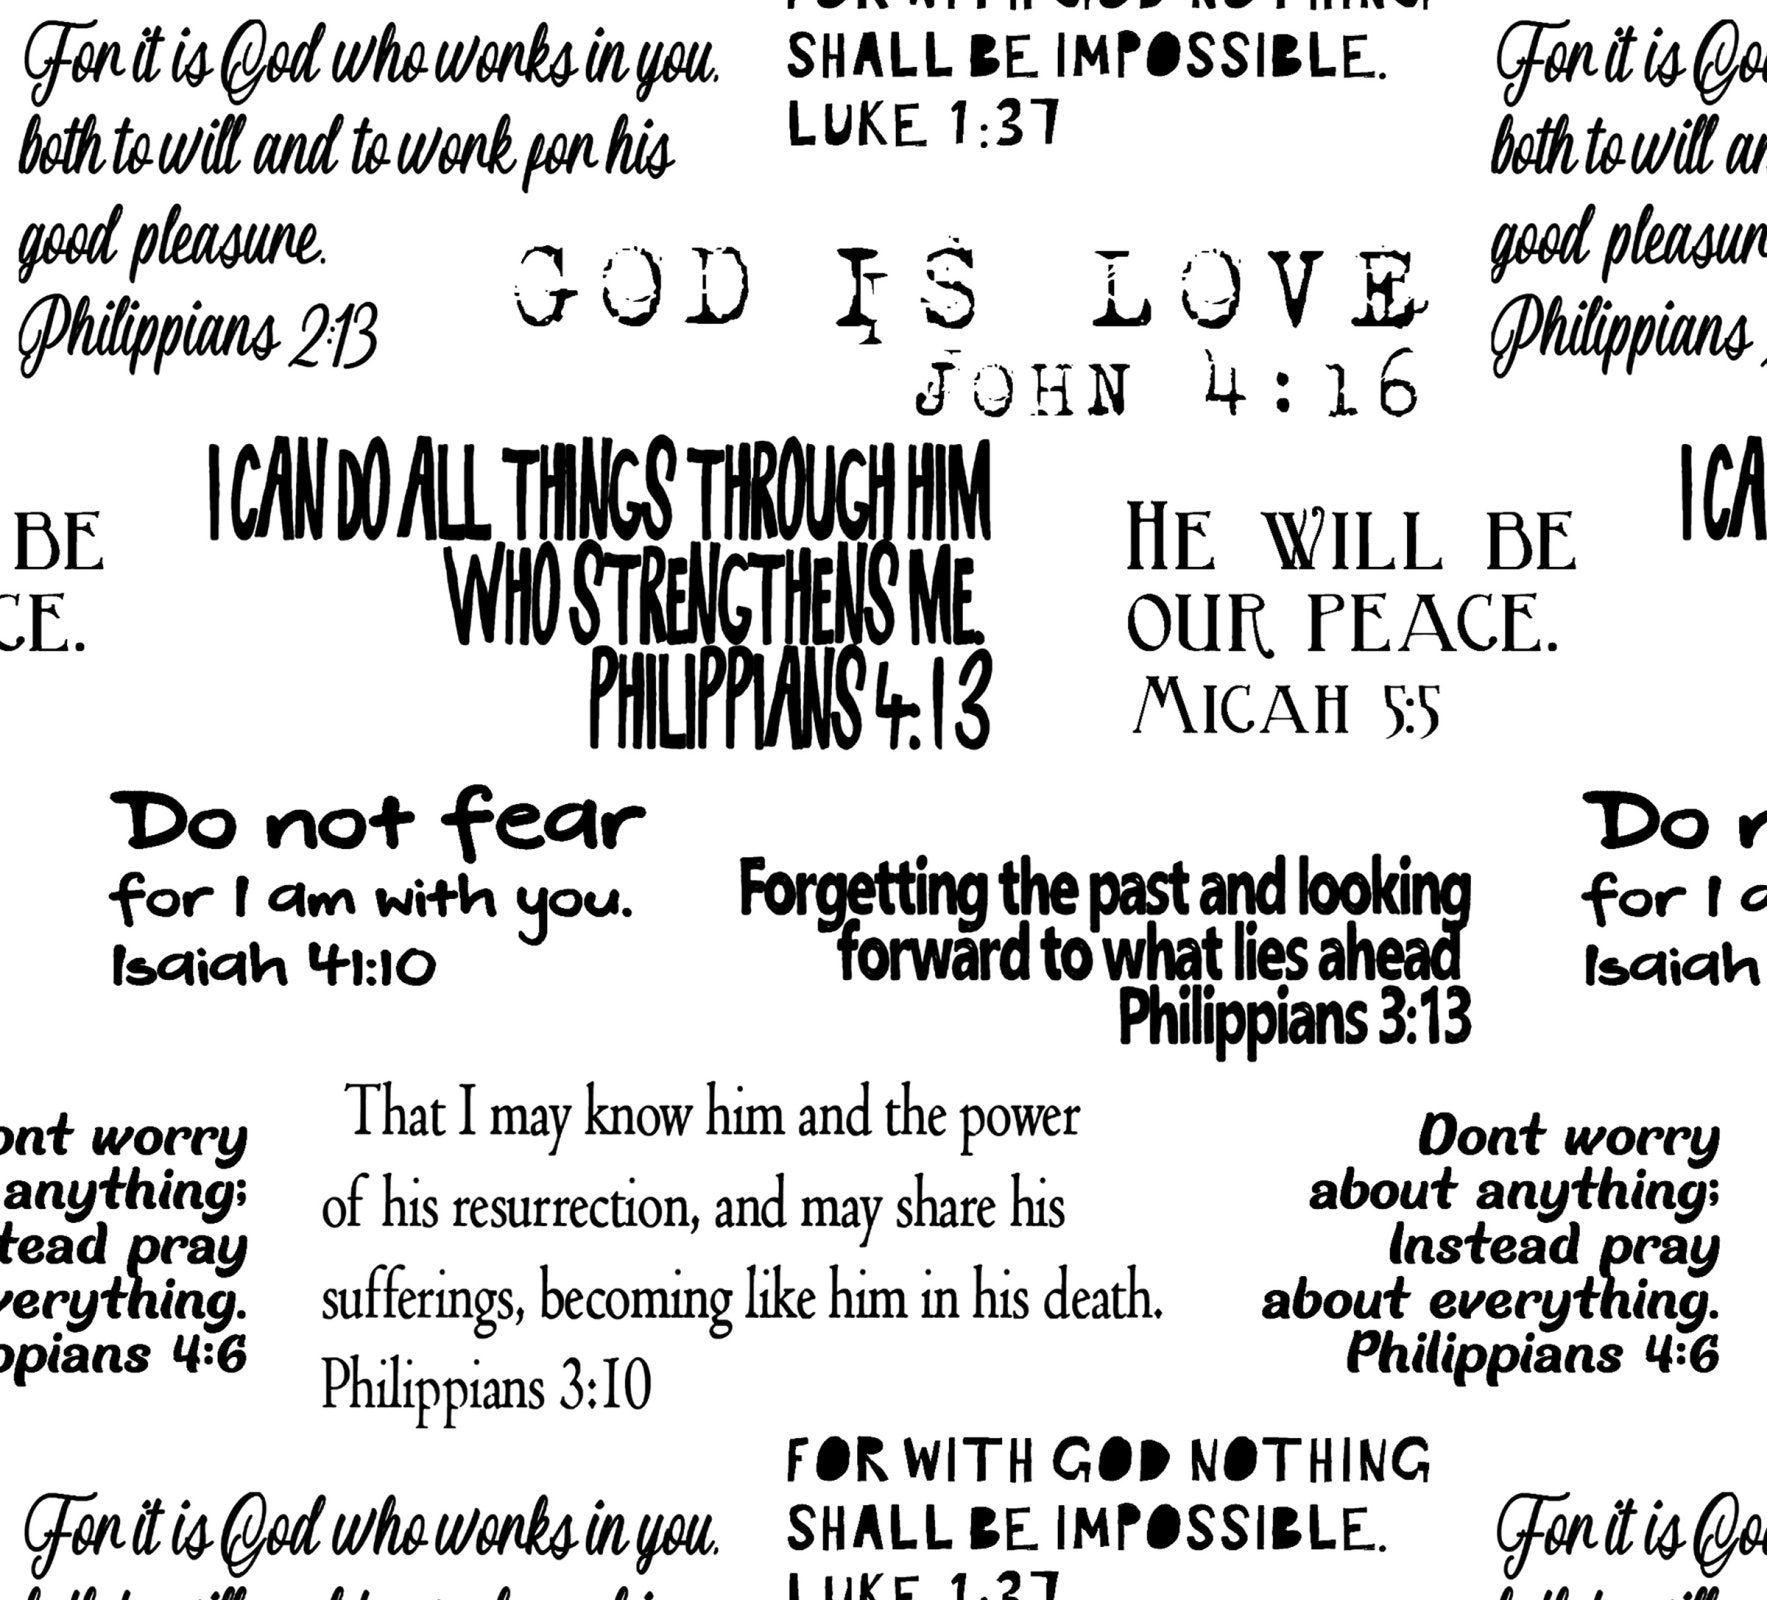 FOR WITH GOD NOTHING
SHALL BE IMPOSSIBLE.
LUKE 1:37
For it is God who works in you.
both to will and to work for his
good pleasure.
Philippians 2:13
For it is God
both to will an
good pleasur
Philippians
GOD IS LOVE
JOHN 4:16
I CAN DO ALL THINGS THROUGH HIM
WHO STRENGTHENS ME.
PHILIPPIANS 4:13
BE
CE.
HE WILL BE
OUR PEACE.
MICAH 5:5
I CA
Do not fear
for I am with you.
Isaiah 41:10
Forgetting the past and looking
forward to what lies ahead
Philippians 3:13
Do
for I a
Isaiah
ont worry
anything;
tead pray
verything.
ppians 4:6
That I may know him and the power
of his resurrection, and may share his
sufferings, becoming like him in his death.
Philippians 3:10
Dont worry
about anything;
Instead pray
about everything.
Philippians 4:6
FOR WITH GOD NOTHING
SHALL BE IMPOSSIBLE.
LUKE 1:37
For it is God who works in you.
For it is God